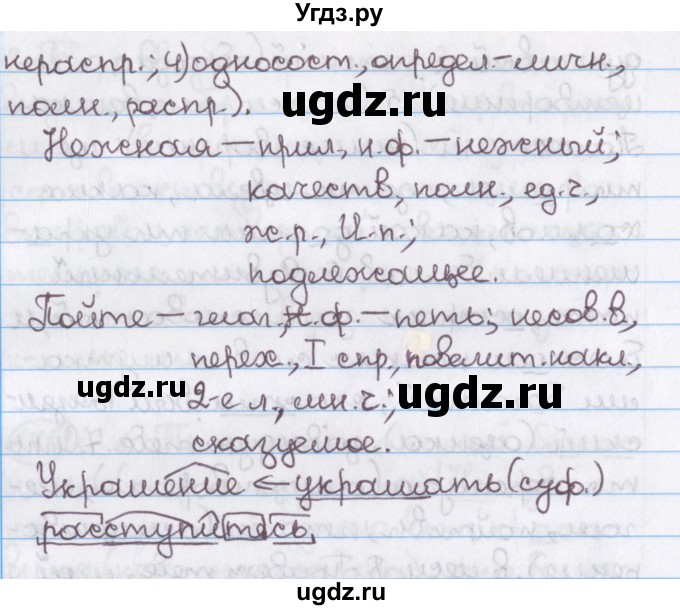 Угдз.ру
нераспр.; 4) односост., определ-личн.,
полн., распр.).
ugdz.ru
Нежная — прил., н.ф. — нежный;
качеств, полн., ед.ч.,
ж.р., И.п.;
подлежащее.
Пойте — глагл, н.ф. — петь; несов.в,
перех., I спр, повелит. накл.,
ugdz.ru
2-е л., мн.ч.;
ugdz.ru
сказуемое.
Украшение ← украшать (суф.)
расступитесь
ugdz.ru